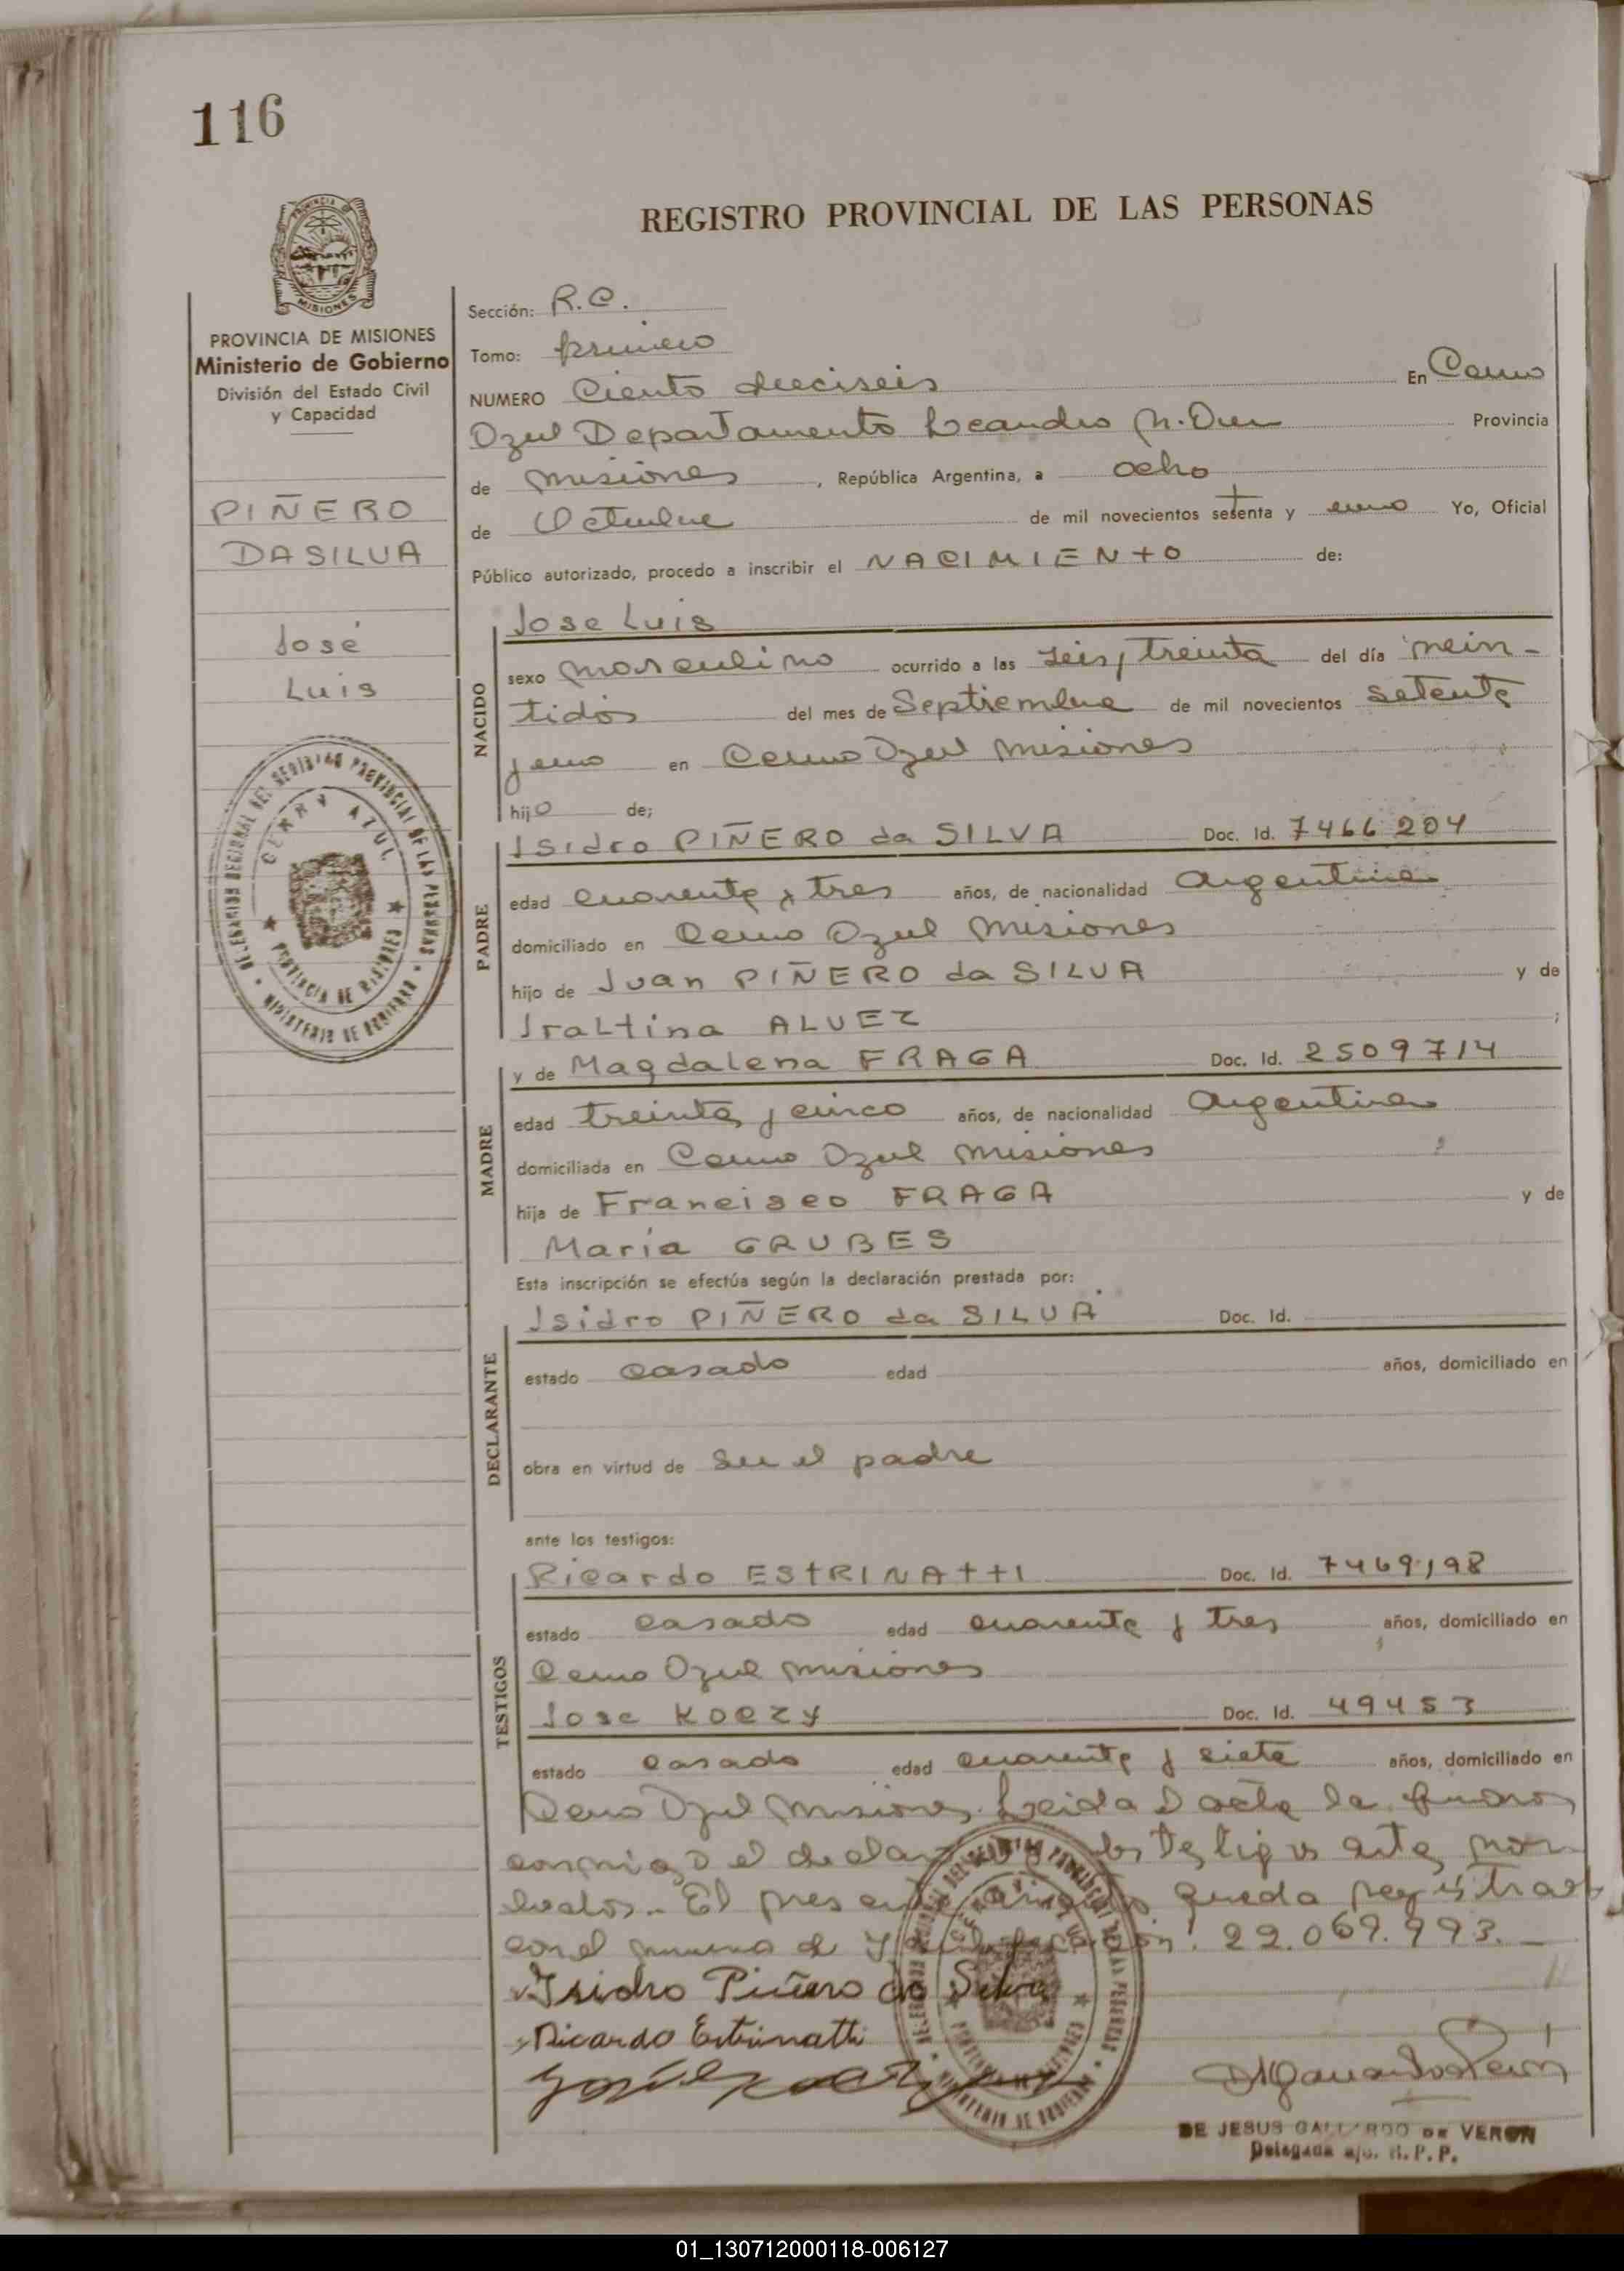 116
REGISTRO PROVINCIAL DE LAS PERSONAS
PROVINCIA DE MISIONES
Ministerio de Gobierno
División del Estado Civil
y Capacidad
PIÑERO
DASILVA
José
Luis
DELEGACION REGIONAL DEL REGISTRO PROVINCIAL DE LAS PERSONAS
MINISTERIO DE GOBIERNO
CERRO AZUL
PROVINCIA DE MISIONES
Sección: R.C.
Tomo: primero
NUMERO Ciento dieciseis En Cerro
Azul Departamento Leandro N. Alem Provincia
de Misiones, República Argentina, a ocho
de Octubre de mil novecientos setenta y uno Yo, Oficial
Público autorizado, procedo a inscribir el NACIMIENTO de:
Jose Luis
NACIDO
sexo masculino ocurrido a las seis, treinta del día vein-
tidos del mes de Septiembre de mil novecientos setenta
y uno en Cerro Azul Misiones
hijo de;
PADRE
Isidro PIÑERO da SILVA Doc. Id. 7466204
edad cuarenta y tres años, de nacionalidad argentina
domiciliado en Cerro Azul Misiones
hijo de Juan PIÑERO da SILVA y de
Iraltina ALVEZ
MADRE
y de Magdalena FRAGA Doc. Id. 2509714
edad treinta y cinco años, de nacionalidad argentina
domiciliada en Cerro Azul Misiones
hija de Francisco FRAGA y de
María GRUBES
Esta inscripción se efectúa según la declaración prestada por:
DECLARANTE
Isidro PIÑERO da SILVA Doc. Id.
estado casado edad años, domiciliado en
obra en virtud de ser el padre
ante los testigos:
TESTIGOS
Ricardo ESTRINATTI Doc. Id. 7469198
estado casado edad cuarenta y tres años, domiciliado en
Cerro Azul Misiones
Jose KOCZY Doc. Id. 49453
estado casado edad cuarenta y siete años, domiciliado en
Cerro Azul Misiones. Leida el acta la firman
conmigo el declarante y los testigos antes nom
brados. El presente queda registrado
con el numero de : 22.069.993.
Isidro Piñero da Silva
Ricardo Estrinatti
DE JESUS GALLARDO DE VERON
Delegada a/c. R. P. P.
01_130712000118-006127